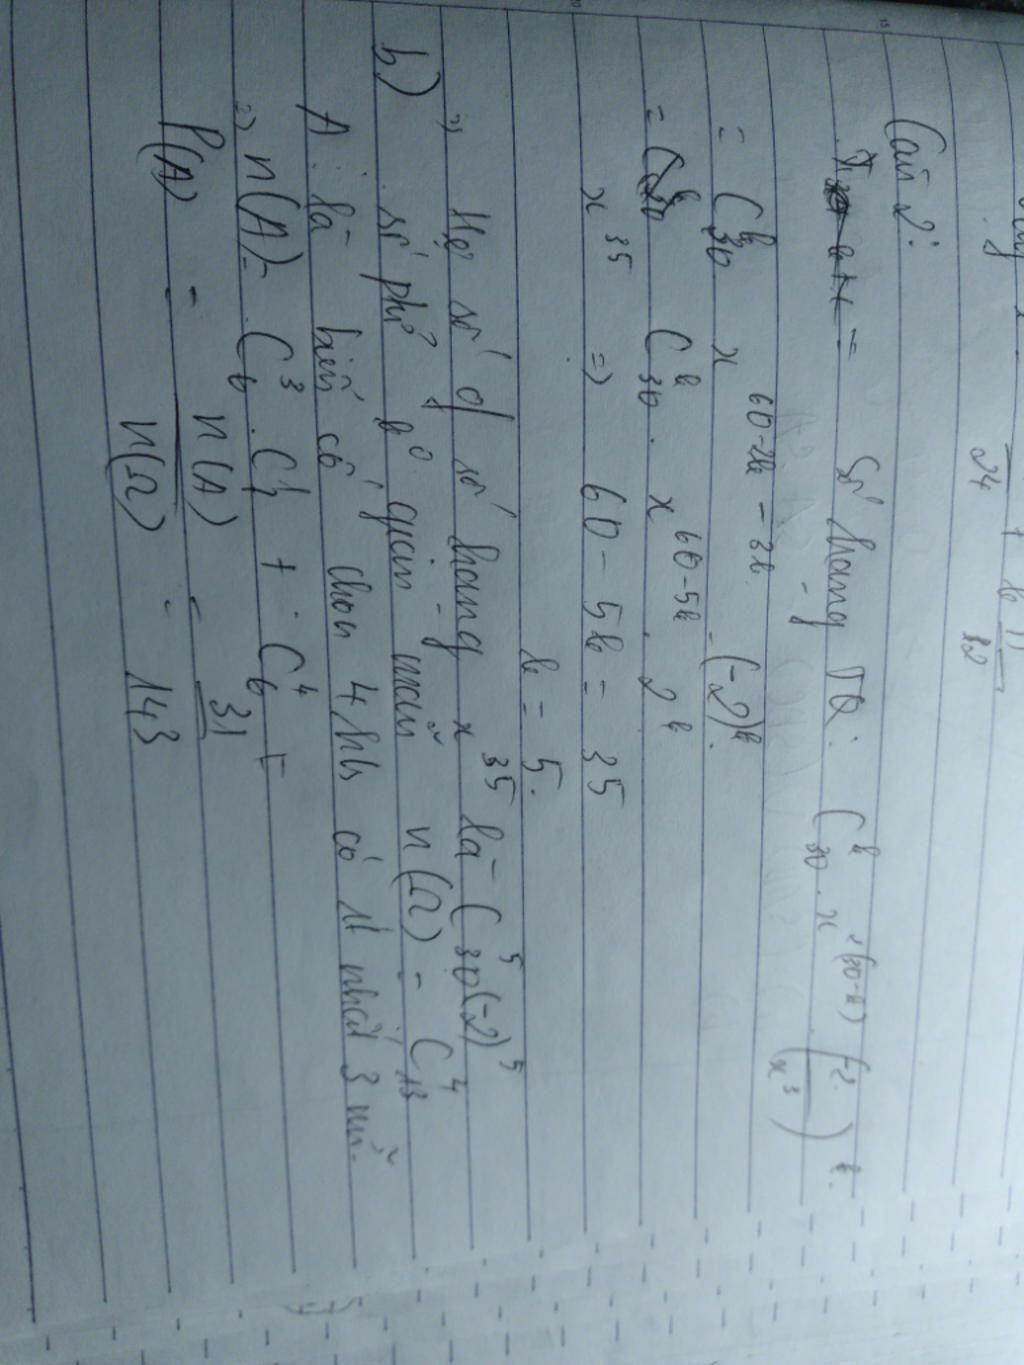 24
Câu 2:
= Số hạng TQ: C^k_30 . x^2(30-k) (-2/x^3)^k.
= C^k_30 x^60-2k-3k . (-2)^k.
= C^k_30 . x^60-5k . 2^k
x^35 => 60 - 5k = 35
k = 5.
=> Hệ số of số hạng x^35 là C^5_30(-2)^5
b) số phtử k^o gian mẫu n(Ω) = C^4_13
A: là biến cố chọn 4 hs có ít nhất 3 nữ.
=> n(A) = C^3_6 . C^1_7 + C^4_6 =
P(A) = n(A)/n(Ω) = 31/143